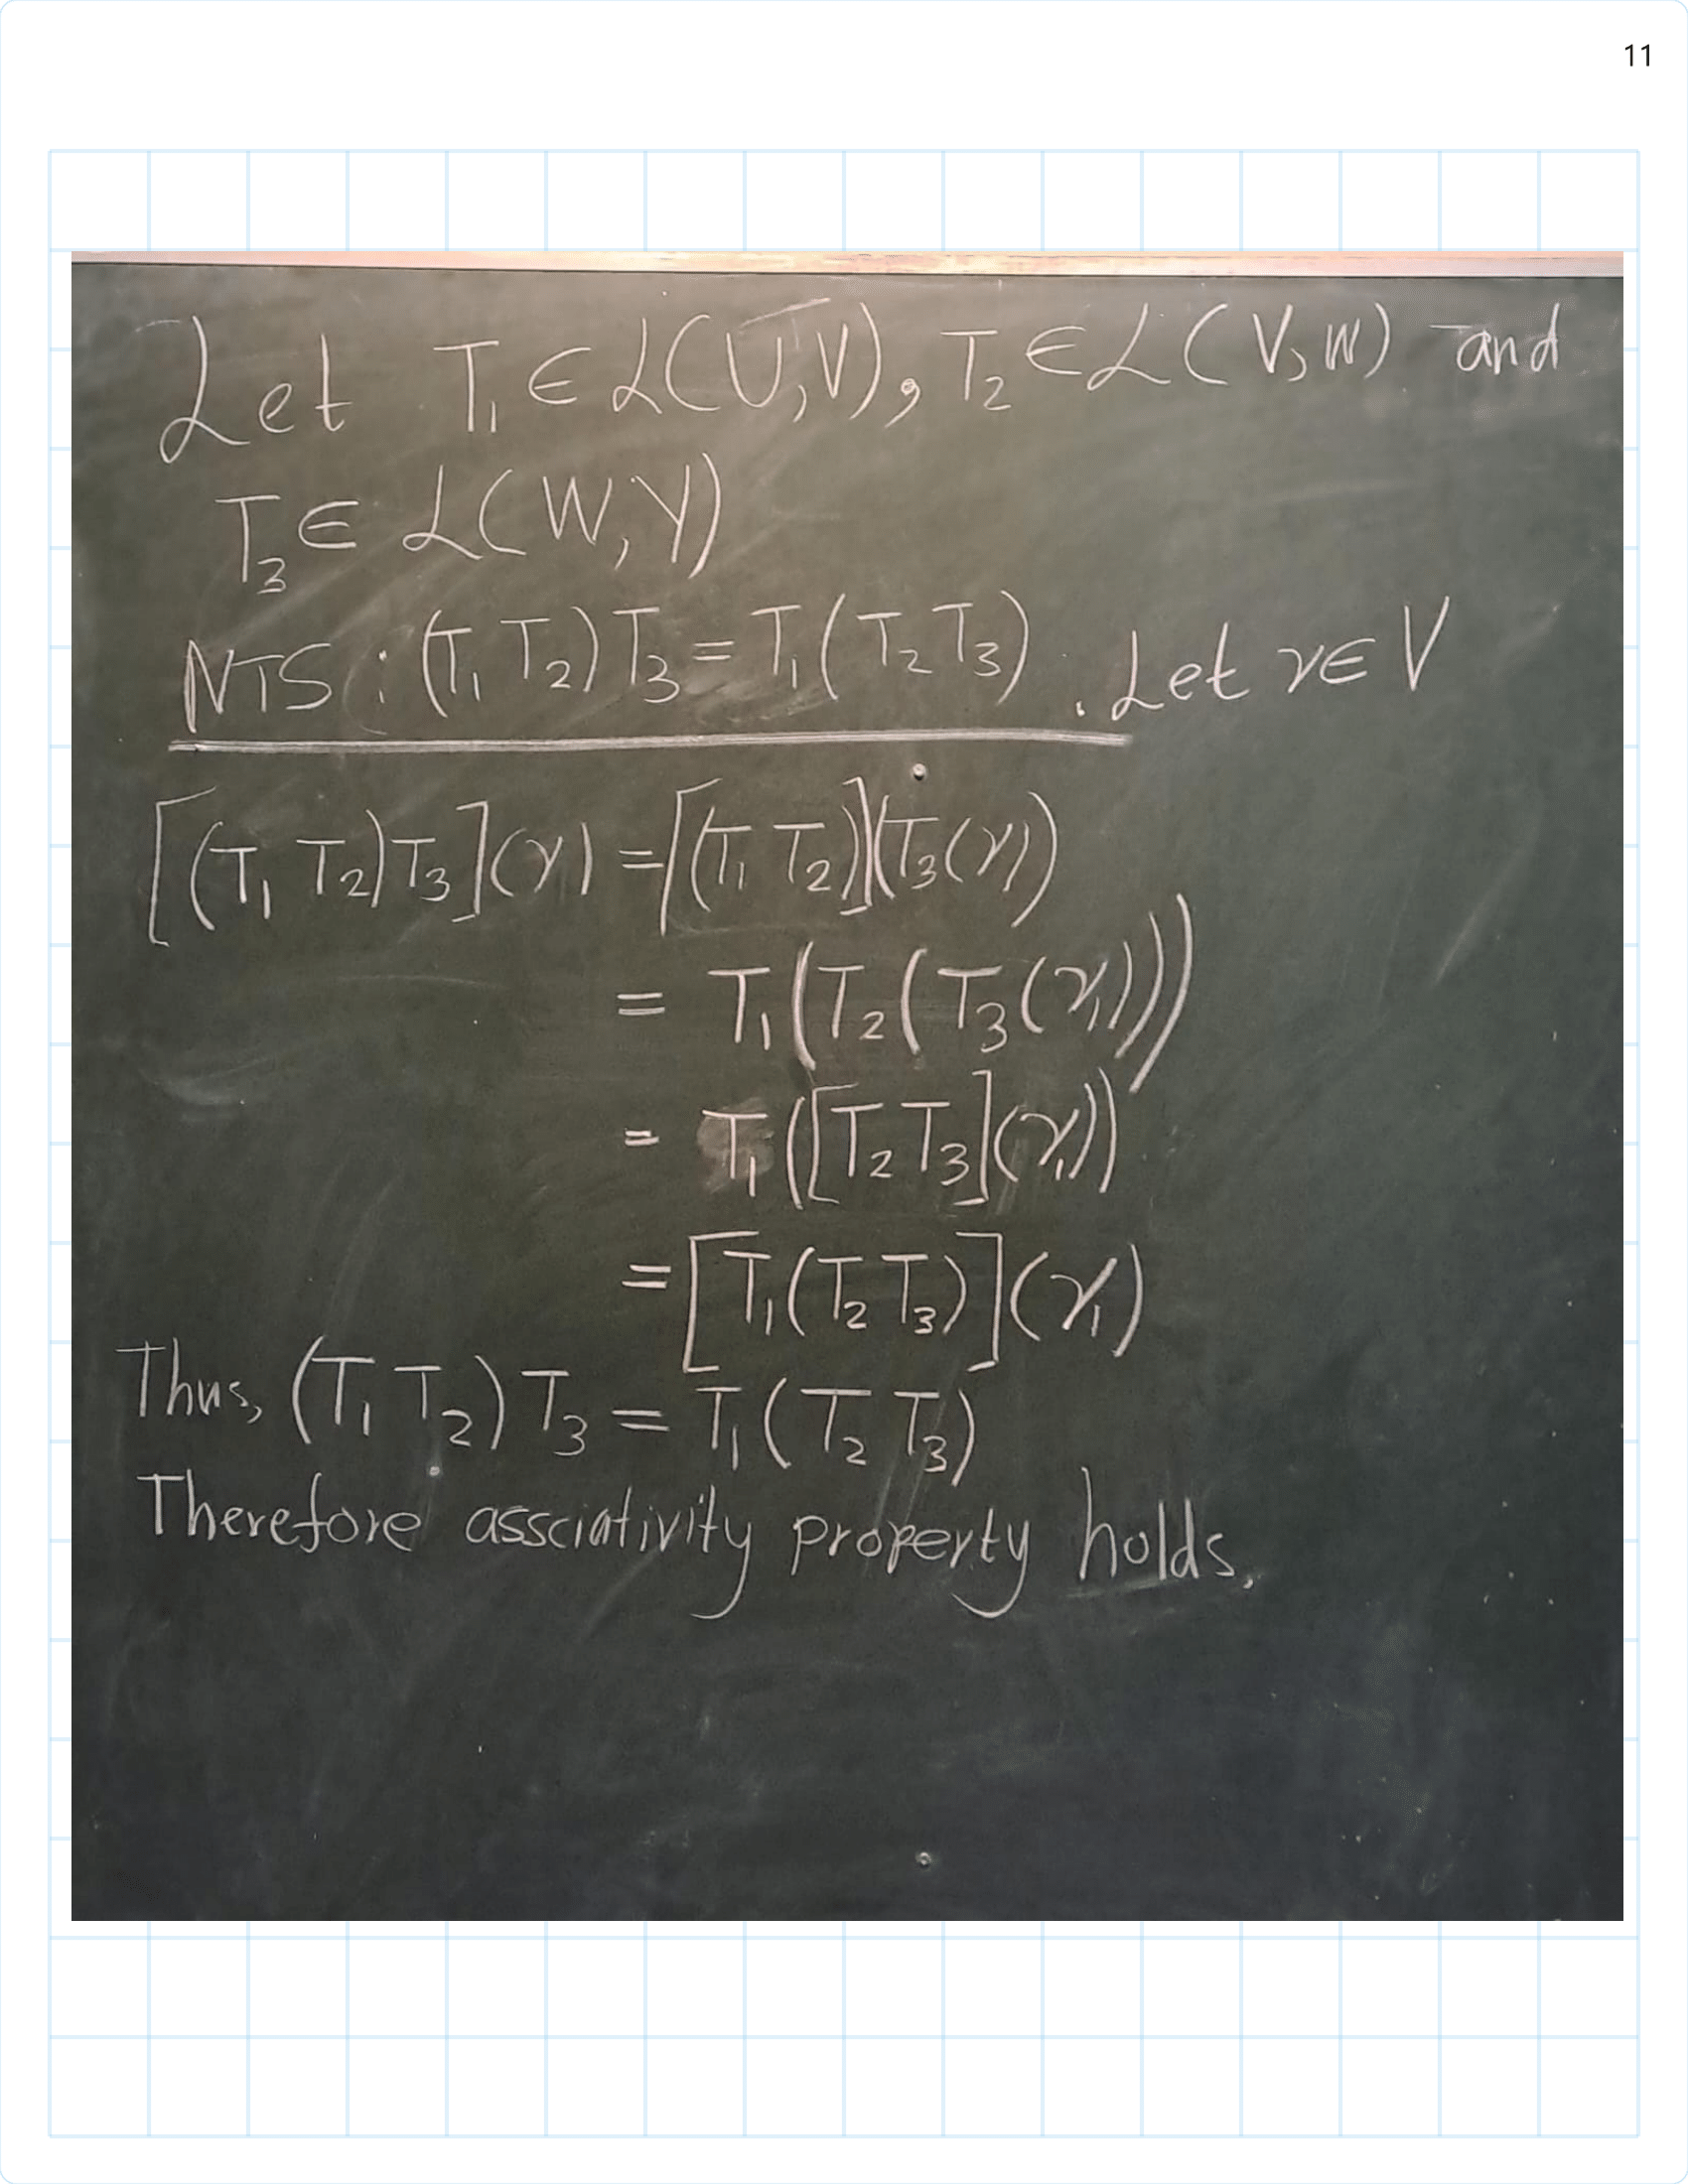 11
Let T₁ ∈ ℒ(U,V), T₂ ∈ ℒ(V,W) and
T₃ ∈ ℒ(W,Y)
NTS : (T₁ T₂) T₃ = T₁ (T₂ T₃) . Let v ∈ V
[(T₁ T₂) T₃](v) = [(T₁ T₂)](T₃(v))
= T₁(T₂(T₃(v₁)))
= T₁([T₂ T₃](v₁))
= [T₁(T₂ T₃)](v₁)
Thus, (T₁ T₂) T₃ = T₁ (T₂ T₃)
Therefore assciativity property holds.